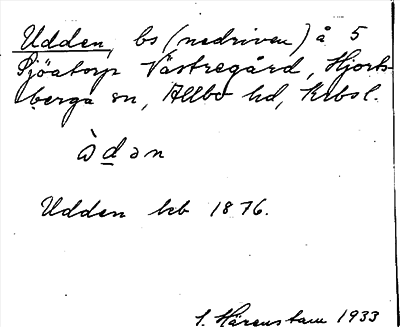 Udden, bs (nedriven) å 5
Sjöatorp Västregård, Hjorts-
berga sn, Allbo hd, Krbsl.
ùdən
Udden kb 1876.
S. Härenstam 1933